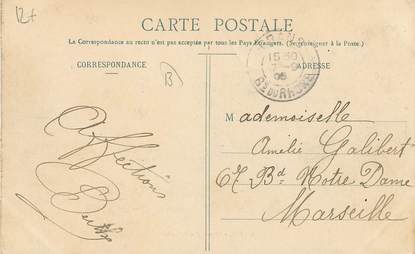 12+
CARTE POSTALE
La Correspondance au recto n'est pas acceptée par tous les Pays Etrangers. (Se renseigner à la Poste.)
CORRESPONDANCE
ADRESSE
B
15 50
05
Bs DU RHONE
Affections
Mademoiselle
Amélie Galibert
67 Bd Notre Dame
Marseille